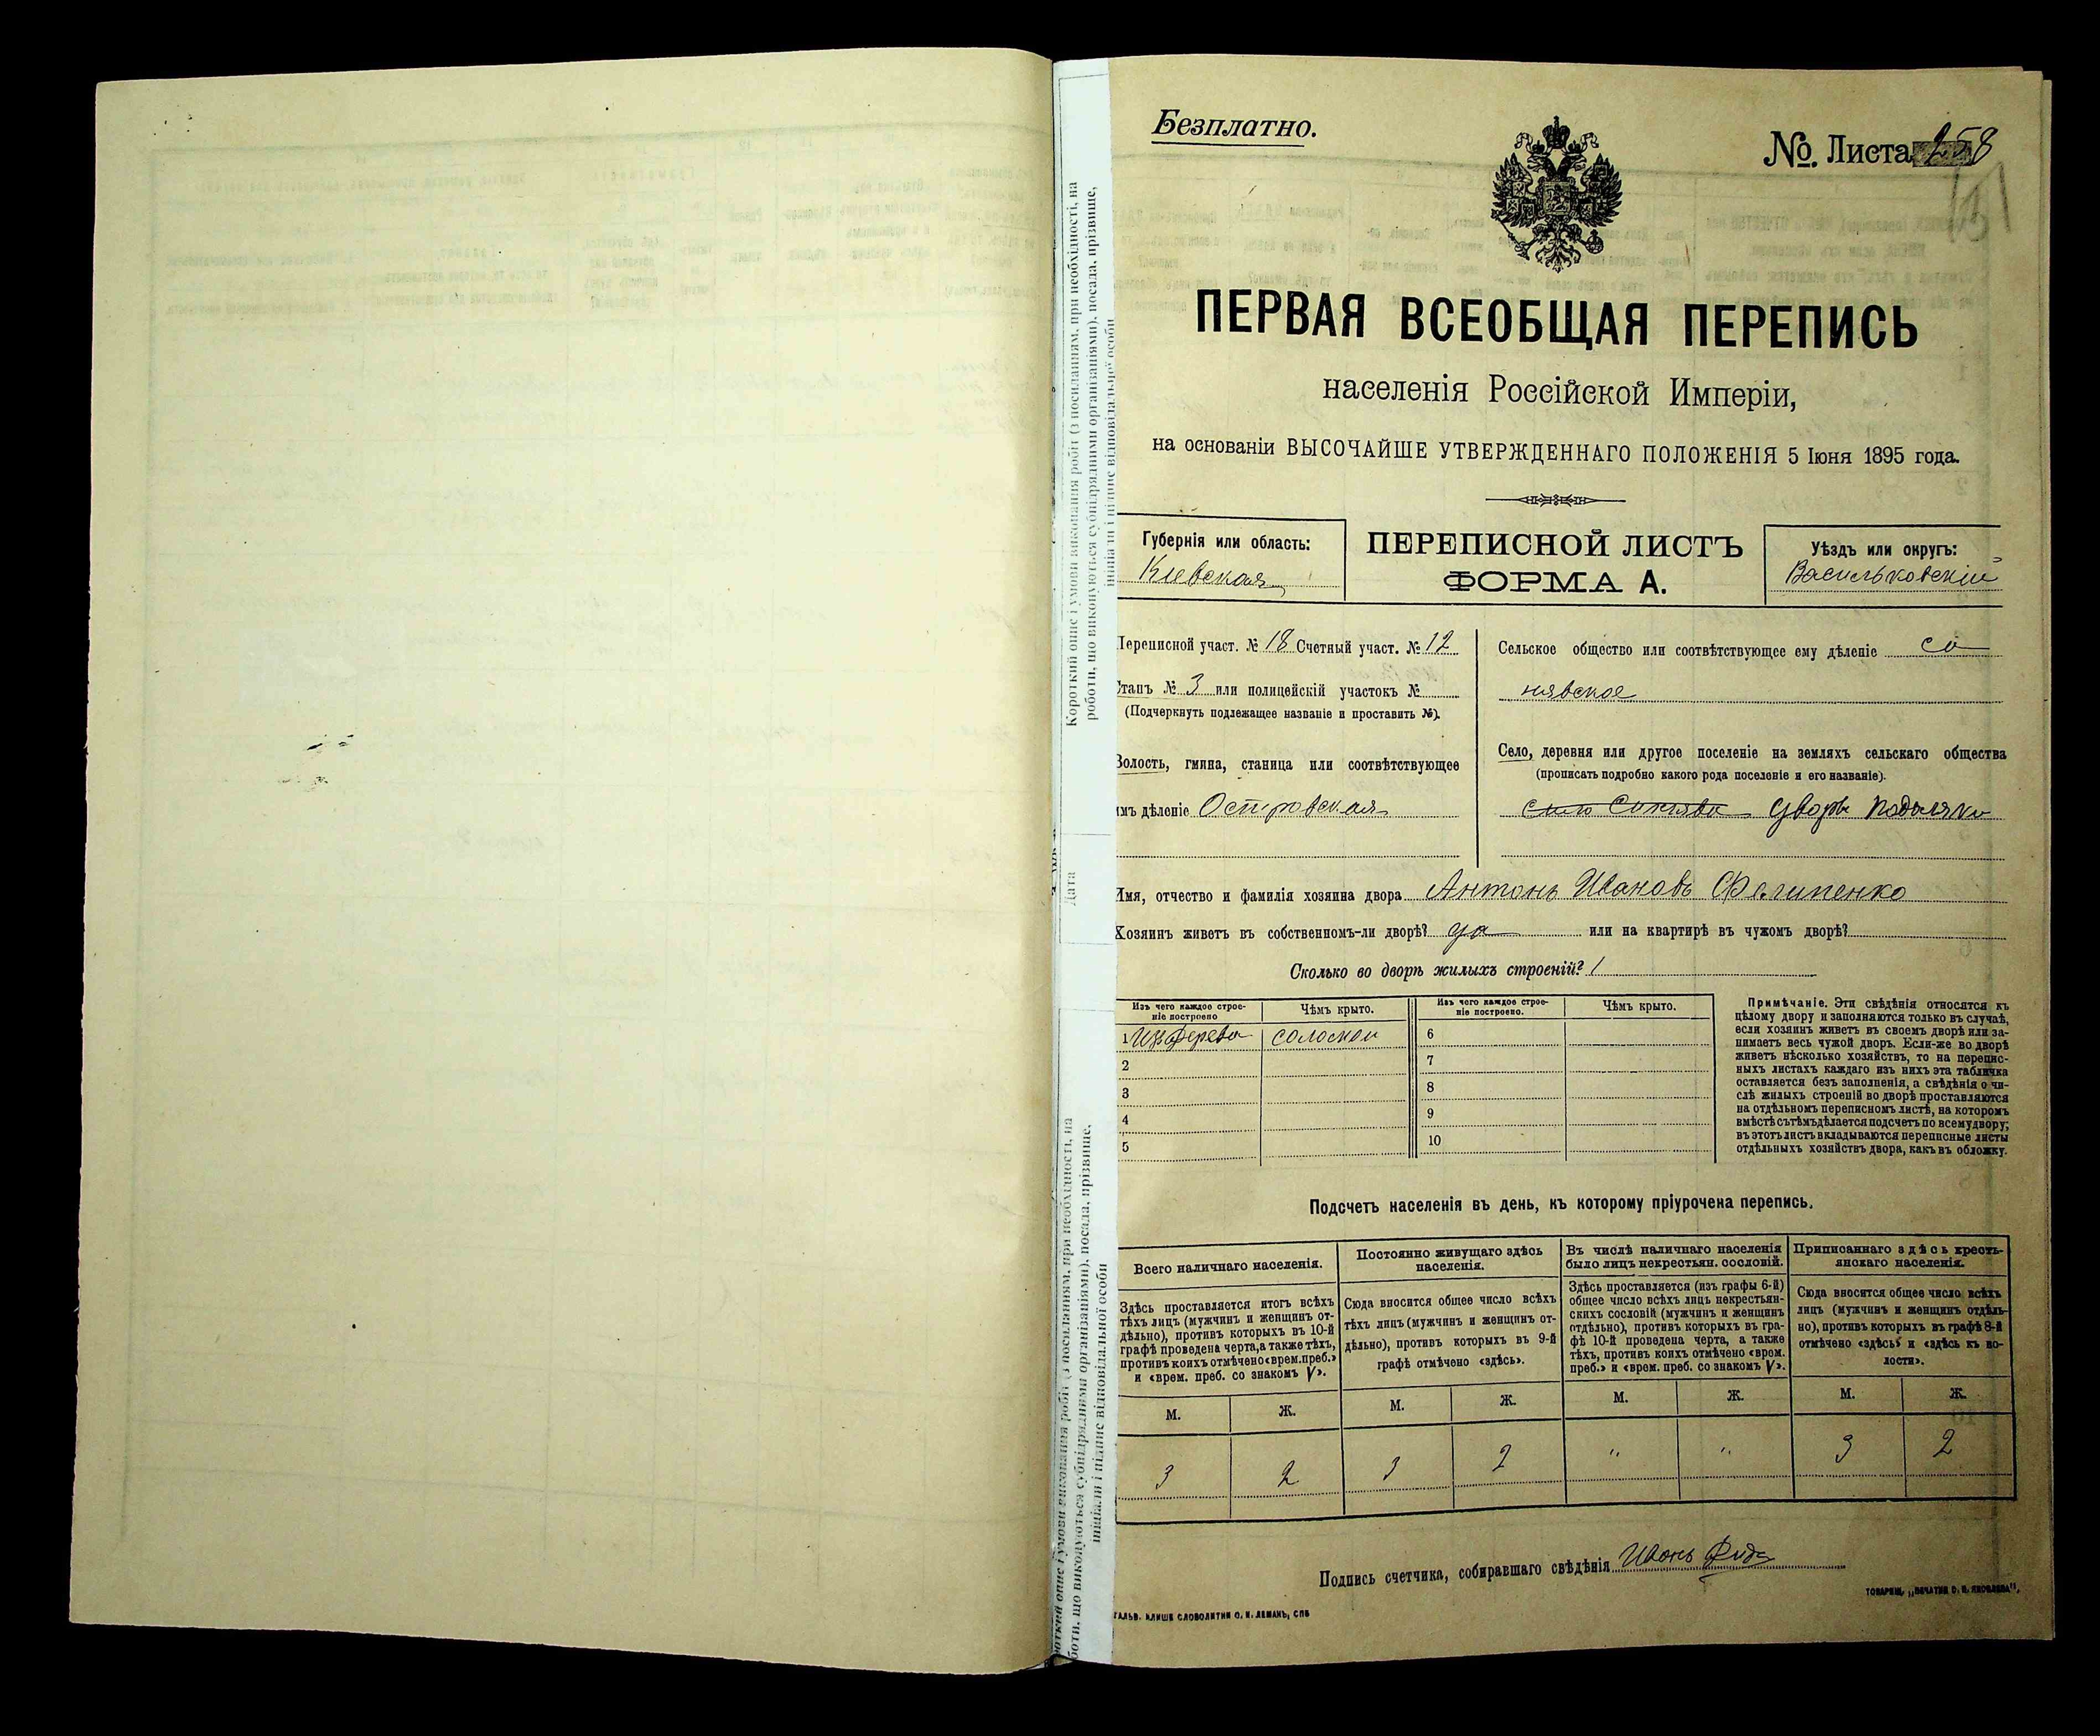 Безплатно.
№ Листа 258
ПЕРВАЯ ВСЕОБЩАЯ ПЕРЕПИСЬ
населенія Россійской Имперіи,
на основаніи ВЫСОЧАЙШЕ УТВЕРЖДЕННАГО ПОЛОЖЕНІЯ 5 Іюня 1895 года.
Губернія или область:
Кіевская
ПЕРЕПИСНОЙ ЛИСТЪ
ФОРМА А.
Уѣздъ или округъ:
Васильковскій
Переписной участ. № 18 Счетный участ. № 12
Станъ № 3 или полицейскій участокъ №
(Подчеркнуть подлежащее названіе и проставить №).
Волость, гмина, станица или соотвѣтствующее
имъ дѣленіе Островская
Сельское общество или соотвѣтствующее ему дѣленіе
нявское
Село, деревня или другое поселеніе на земляхъ сельскаго общества
(прописать подробно какого рода поселеніе и его названіе).
дворъ
Имя, отчество и фамилія хозяина двора Антонъ Ивановъ Филипенко
Хозяинъ живетъ въ собственномъ-ли дворѣ? да или на квартирѣ въ чужомъ дворѣ?
Сколько во дворѣ жилыхъ строеній? 1
Изъ чего каждое строе-
ніе построено
Чѣмъ крыто.
Изъ чего каждое строе-
ніе построено.
Чѣмъ крыто.
1 Изъ дерева соломой
2
3
4
5
6
7
8
9
10
Примѣчаніе. Эти свѣдѣнія относятся къ
цѣлому двору и заполняются только въ случаѣ,
если хозяинъ живетъ въ своемъ дворѣ или за-
нимаетъ весь чужой дворъ. Если-же во дворѣ
живетъ нѣсколько хозяйствъ, то на перепис-
ныхъ листахъ каждаго изъ нихъ эта табличка
оставляется безъ заполненія, а свѣдѣнія о чи-
слѣ жилыхъ строеній во дворѣ проставляются
на отдѣльномъ переписномъ листѣ, на которомъ
вмѣстѣ съ тѣмъ дѣлается подсчетъ по всему двору;
въ этотъ листъ вкладываются переписные листы
отдѣльныхъ хозяйствъ двора, какъ въ обложку.
Подсчетъ населенія въ день, къ которому пріурочена перепись.
Всего наличнаго населенія.
Здѣсь проставляется итогъ всѣхъ
тѣхъ лицъ (мужчинъ и женщинъ от-
дѣльно), противъ которыхъ въ 10-й
графѣ проведена черта, а также тѣхъ,
противъ коихъ отмѣчено «врем. преб.»
и «врем. преб. со знакомъ V».
Постоянно живущаго здѣсь
населенія.
Сюда вносится общее число всѣхъ
тѣхъ лицъ (мужчинъ и женщинъ от-
дѣльно), противъ которыхъ въ 9-й
графѣ отмѣчено «здѣсь».
Въ числѣ наличнаго населенія
было лицъ некрестьян. сословій.
Здѣсь проставляется (изъ графы 6-й)
общее число всѣхъ лицъ некрестьян-
скихъ сословій (мужчинъ и женщинъ
отдѣльно), противъ которыхъ въ гра-
фѣ 10-й проведена черта, а также
тѣхъ, противъ коихъ отмѣчено «врем.
преб.» и «врем. преб. со знакомъ V».
Приписаннаго здѣсь кресть-
янскаго населенія.
Сюда вносится общее число всѣхъ
лицъ (мужчинъ и женщинъ отдѣль-
но), противъ которыхъ въ графѣ 8-й
отмѣчено «здѣсь» и «здѣсь къ во-
лости».
М. Ж. М. Ж. М. Ж. М. Ж.
3 2 3 2 " " 3 2
Подпись счетчика, собиравшаго свѣдѣнія Иванъ
ГАЛЬВ. КЛИШЕ СЛОВОЛИТНИ О. И. ЛЕМАНЪ, СПБ
ТОВАРИЩ. „ПЕЧАТНЯ С. П. ЯКОВЛЕВА".
Короткий опис і умови виконання робіт (з посиланням, при необхідності, на
роботи, що виконуються субпідрядними організаціями), посада, прізвище,
ініціали і підпис відповідальної особи
Дата
роткий опис і умови виконання робіт (з посиланням, при необхідності, на
боти, що виконуються субпідрядними організаціями), посада, прізвище,
ініціали і підпис відповідальної особи